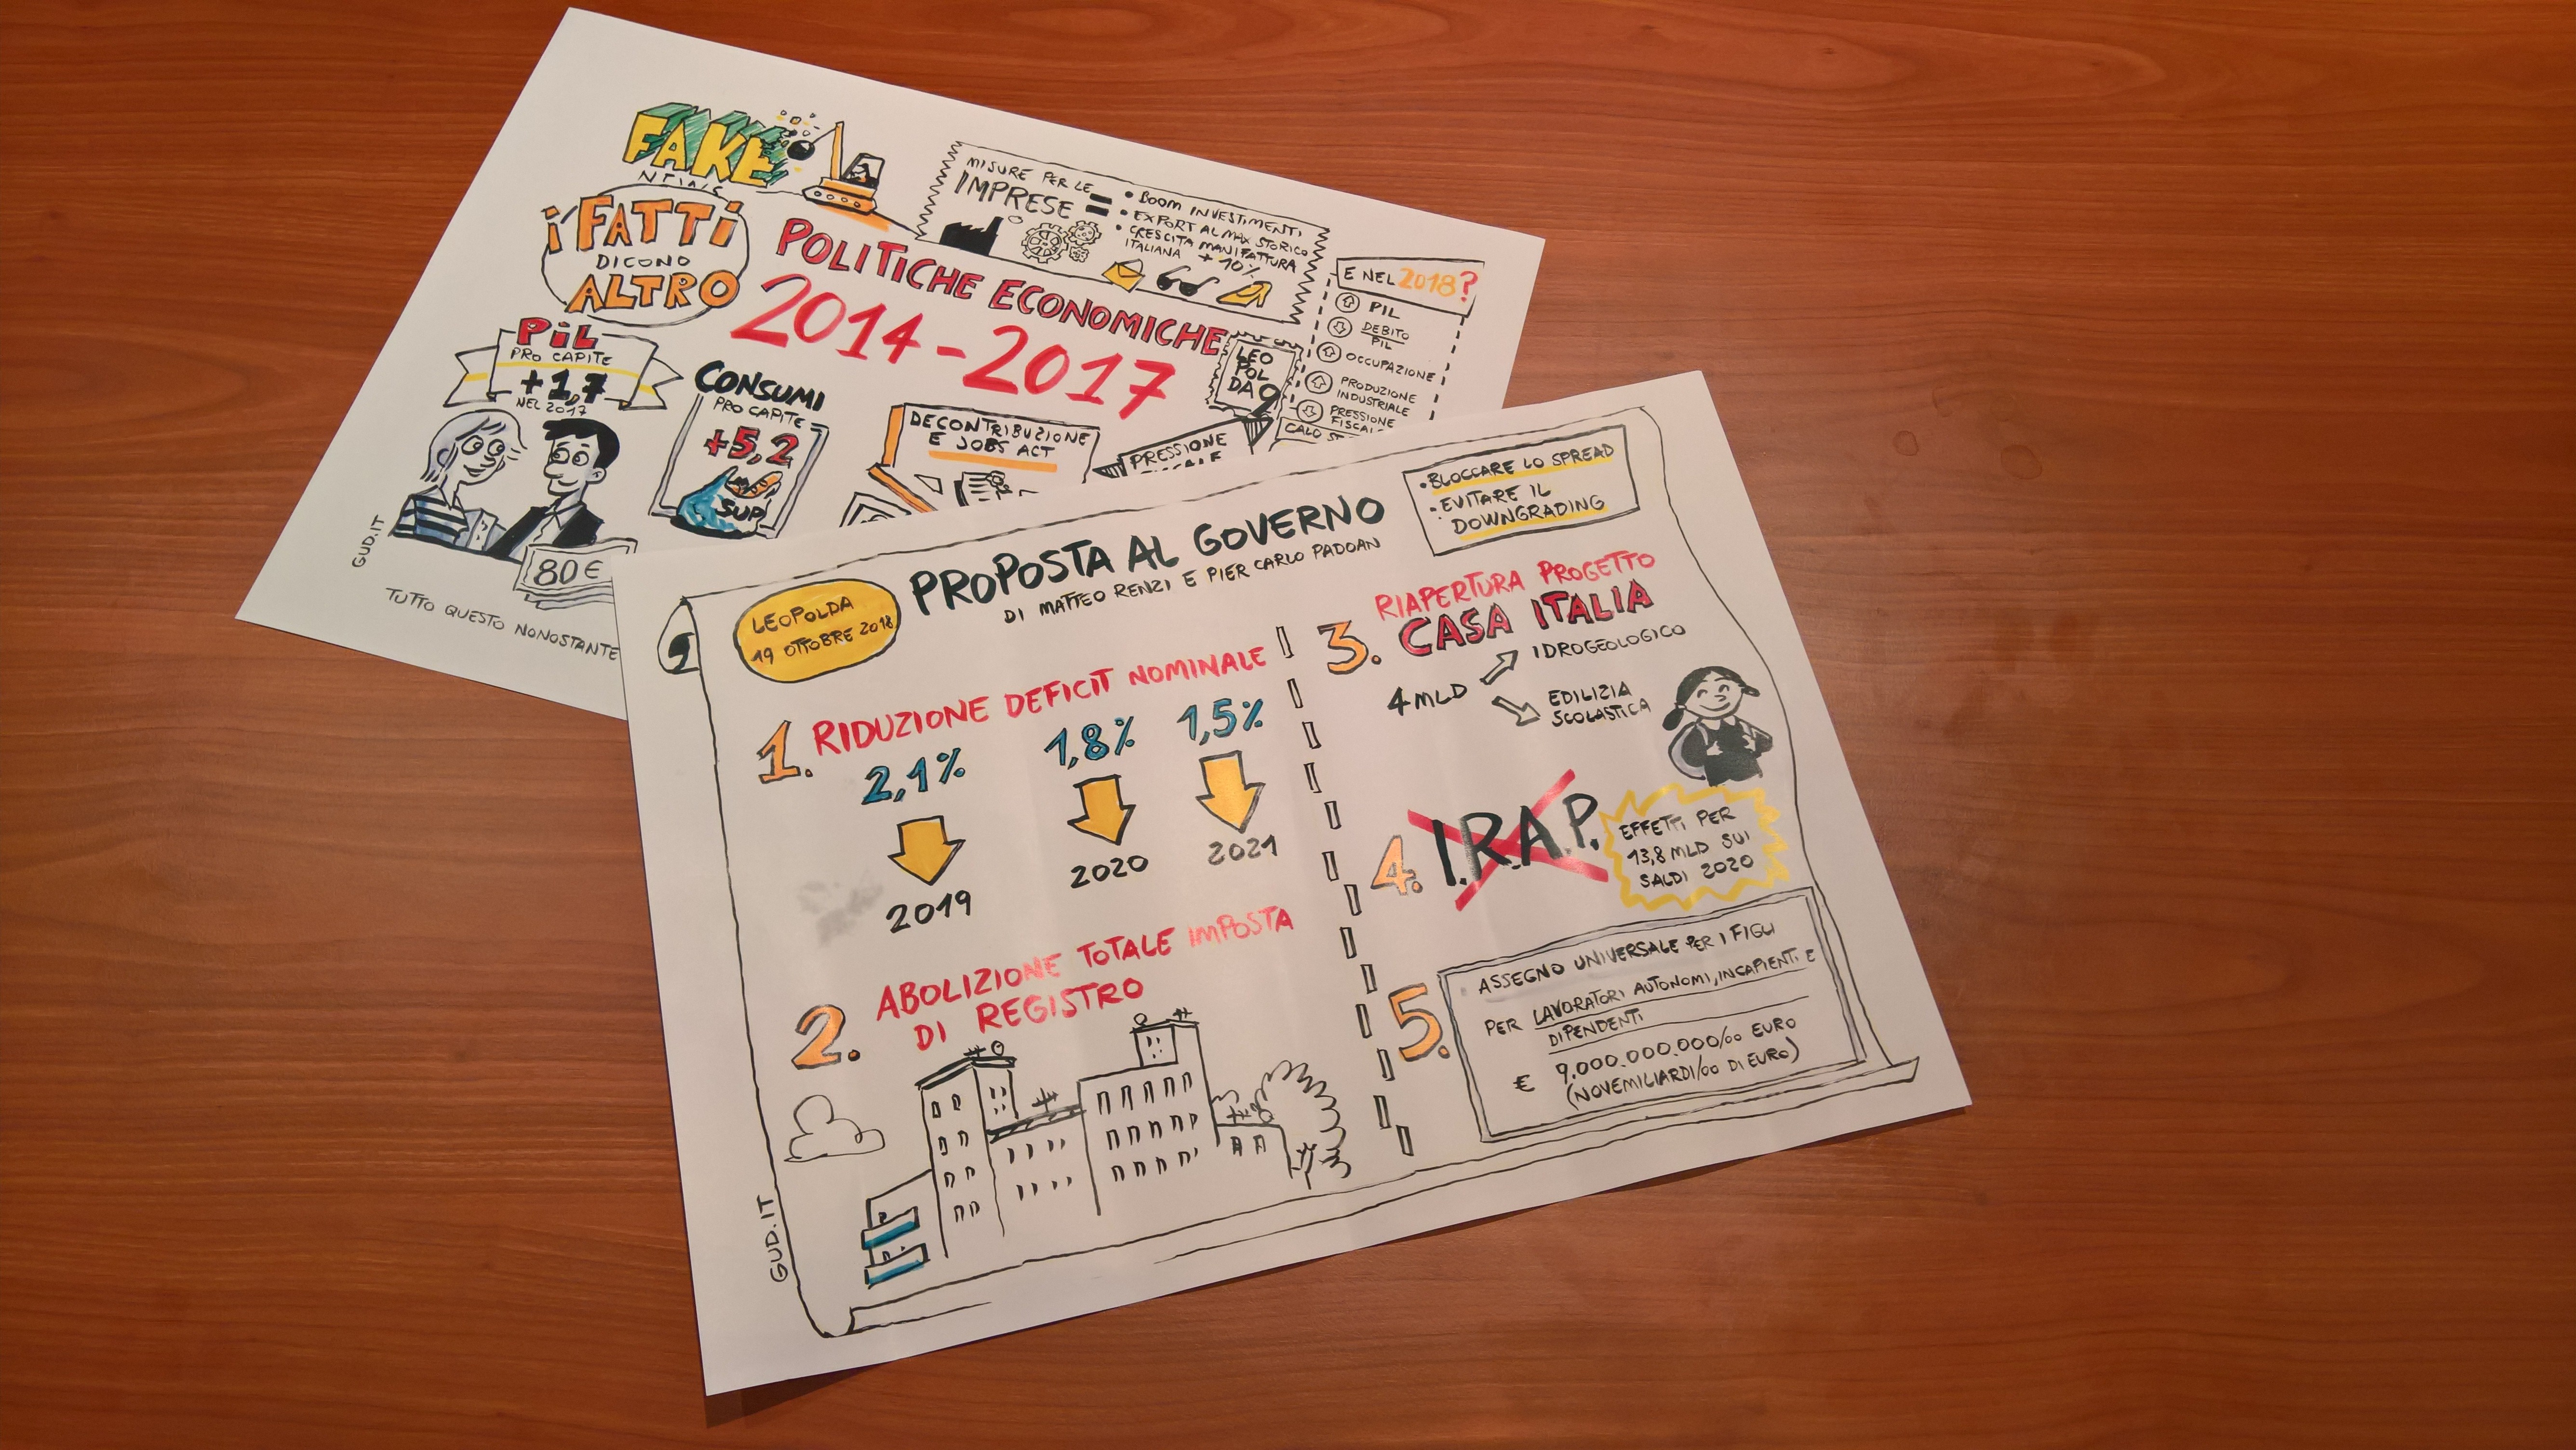 FAKE
NEWS
i FATTI
DICONO
ALTRO
MISURE PER LE
IMPRESE =
• BOOM INVESTIMENTI
• EXPORT AL MAX STORICO
• CRESCITA MANIFATTURA
ITALIANA + 10%
POLITICHE ECONOMICHE
2014-2017
E NEL 2018?
PIL
DEBITO
PIL
OCCUPAZIONE
PRODUZIONE
INDUSTRIALE
PRESSIONE
LEO
POL
DA 9
PIL
PRO CAPITE
+1,7
NEL 2017
CONSUMI
PRO CAPITE
+5,2
SUP
DECONTRIBUZIONE
E JOBS ACT
PRESSIONE
CALO
80€
GUD.IT
TUTTO QUESTO NONOSTANTE
LEOPOLDA
19 OTTOBRE 2018
9
PROPOSTA AL GOVERNO
DI MATTEO RENZI E PIER CARLO PADOAN
• BLOCCARE LO SPREAD
• EVITARE IL
DOWNGRADING
1. RIDUZIONE DEFICIT NOMINALE
2,1% 1,8% 1,5%
2019 2020 2021
2. ABOLIZIONE TOTALE IMPOSTA
DI REGISTRO
3. RIAPERTURA PROGETTO
CASA ITALIA
4 MLD
IDROGEOLOGICO
EDILIZIA
SCOLASTICA
4. I.R.A.P.
EFFETTI PER
13,8 MLD SUI
SALDI 2020
5. ASSEGNO UNIVERSALE PER I FIGLI
PER LAVORATORI AUTONOMI, INCAPIENTI E
DIPENDENTI
€ 9.000.000.000/00 EURO
(NOVEMILIARDI/00 DI EURO)
GUD.IT